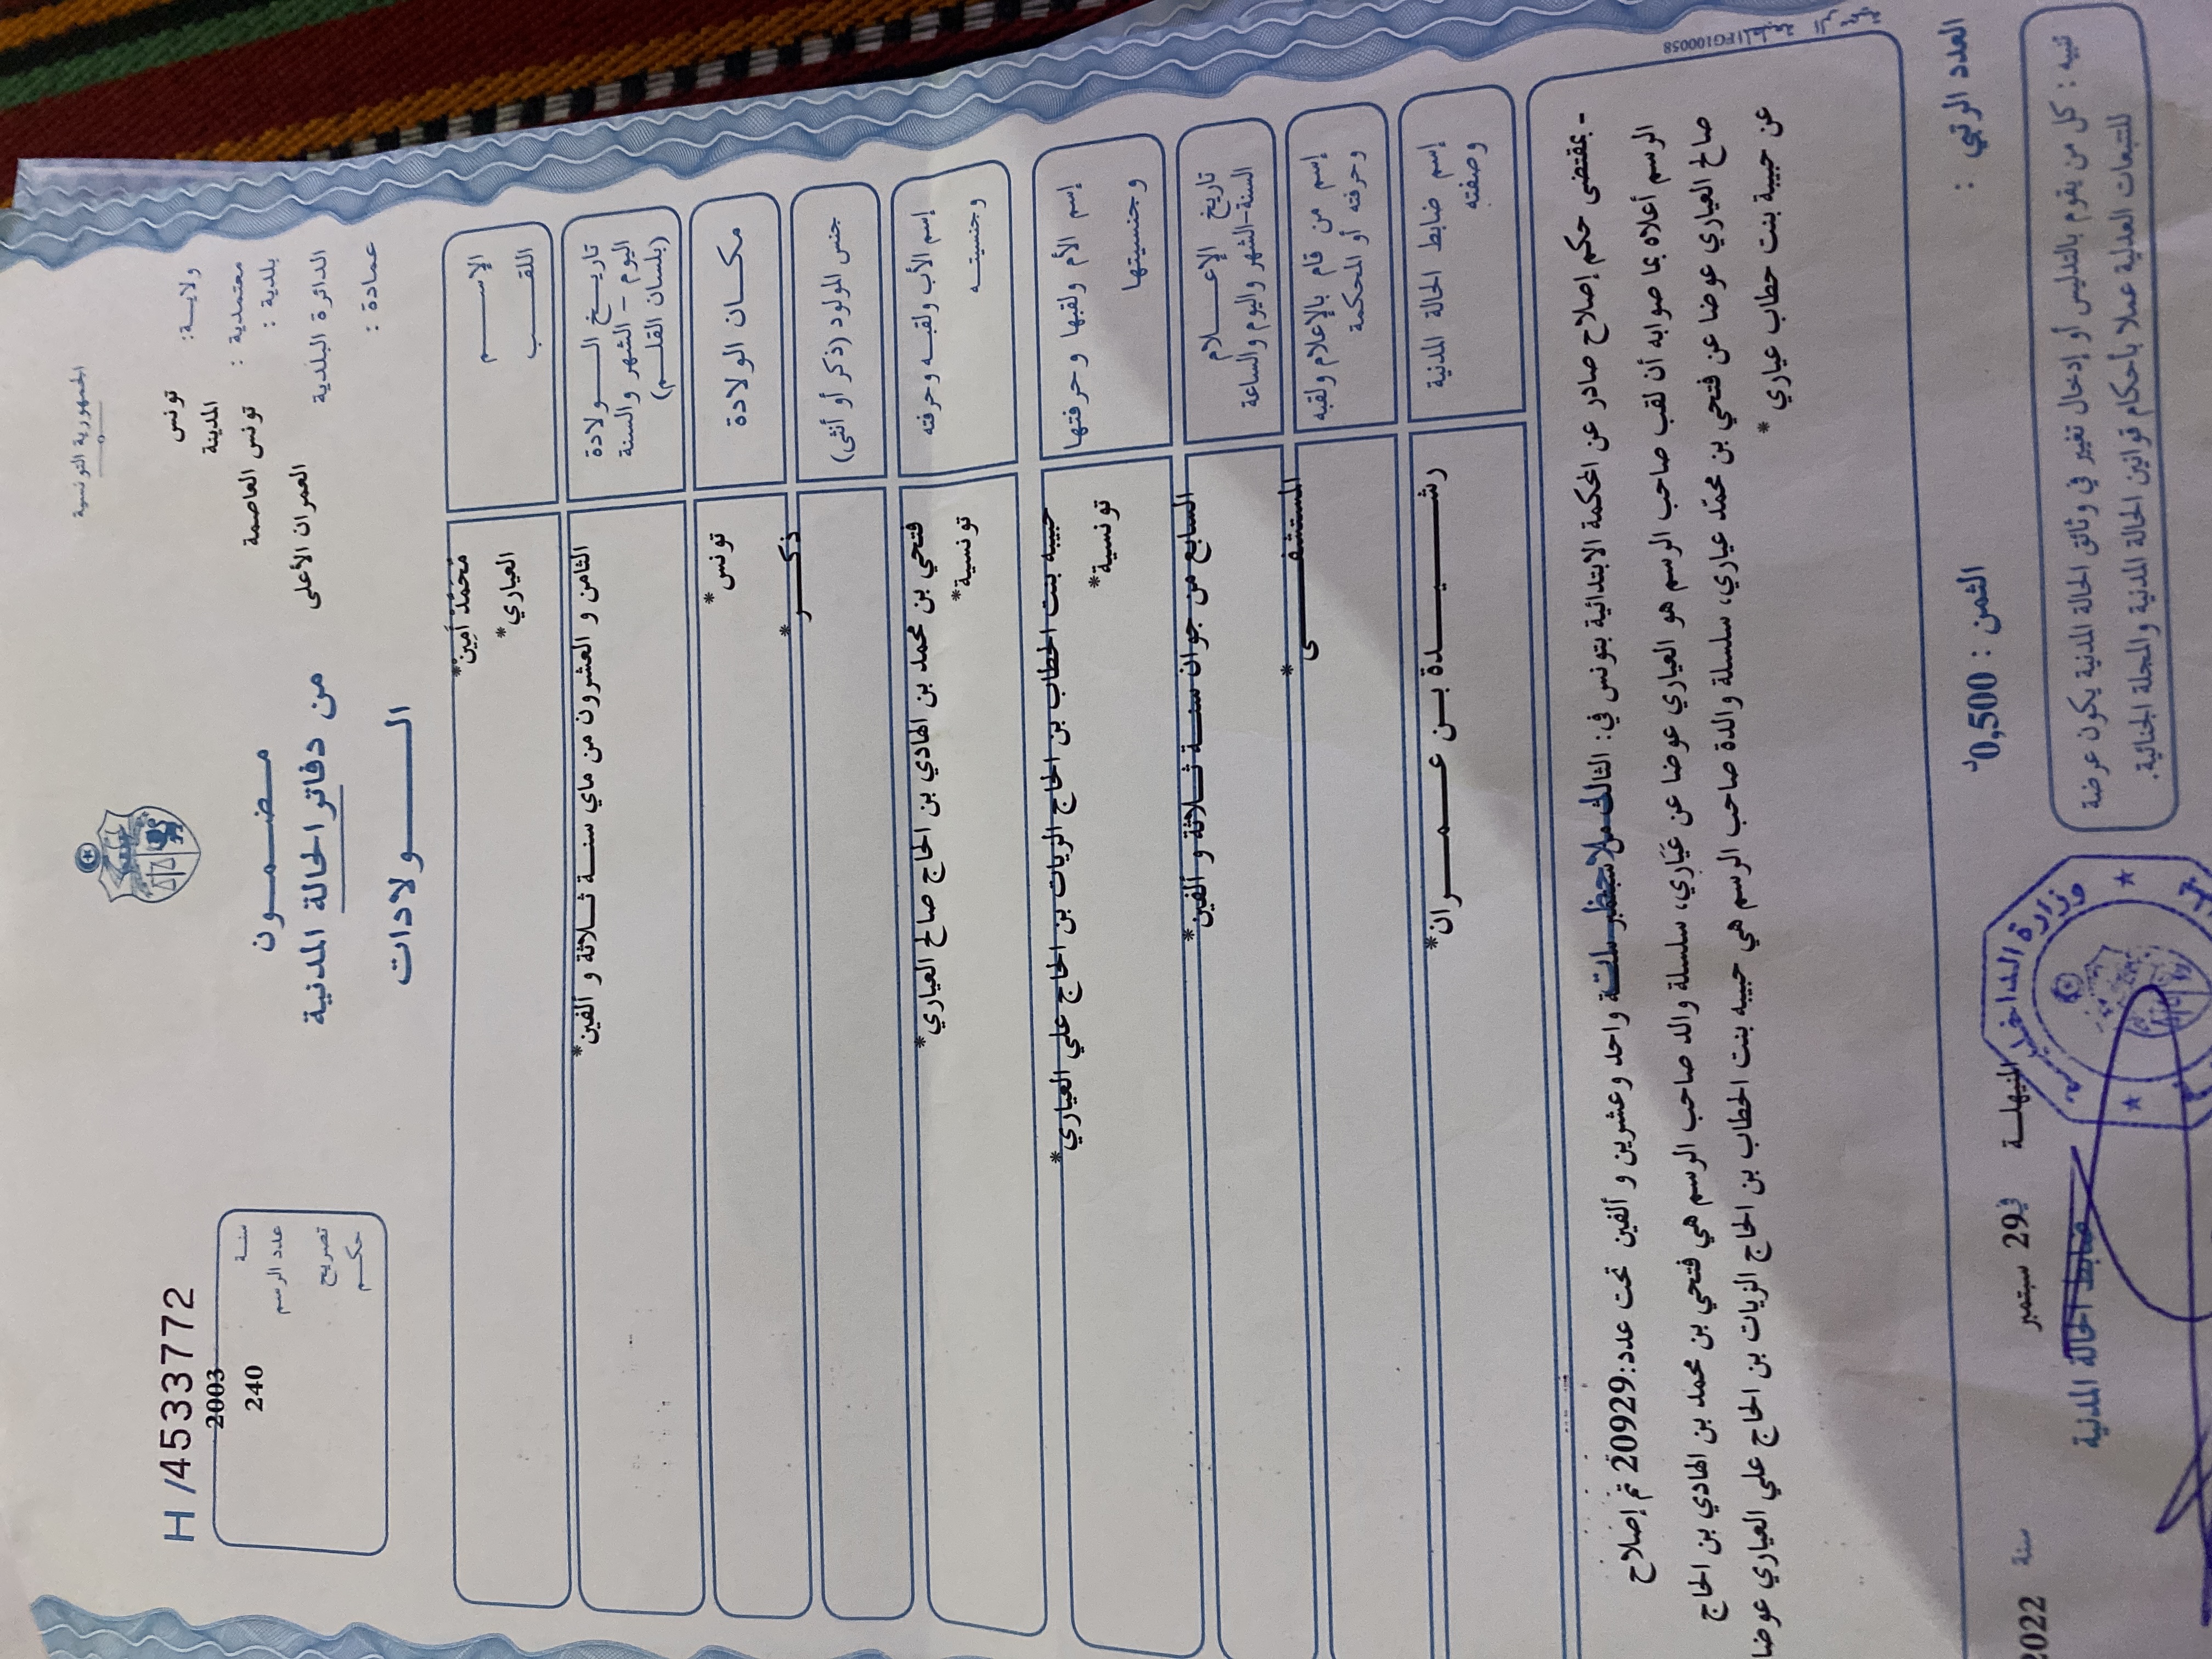 الجمهورية التونسية
ولاية: تونس
معتمدية : المدينة
بلدية : تونس العاصمة
الدائرة البلدية العمران الأعلى
عمادة :
مضمون
من دفاتر الحالة المدنية
الولادات
H /4533772
سنة 2003
عدد الرسم 240
تصريح
حكم
الاسم مُحَمَّدْ أَمِينْ*
اللقب العياري*
تاريخ الولادة
اليوم - الشهر والسنة
(بلسان القلم)
الثامن و العشرون من ماي سنة ثلاثة و ألفين*
مكان الولادة تونس*
جنس المولود (ذكر أو أنثى) ذكر*
إسم الأب ولقبه وحرفته فتحي بن محمد بن الهادي بن الحاج صالح العياري*
وجنسيته تونسية*
إسم الأم ولقبها وحرفتها حبيبه بنت الحطاب بن الحاج الزيات بن الحاج علي العياري*
وجنسيتها تونسية*
تاريخ الإعلام
السنة-الشهر واليوم والساعة
السابع من جوان سنة ثلاثة و ألفين*
إسم من قام بالإعلام ولقبه
وحرفته أو المحكمة
المستشفى*
إسم ضابط الحالة المدنية
وصفته
رشيدة بن عمران*
ملاحظات
- بمقتضى حكم إصلاح صادر عن المحكمة الابتدائية بتونس في: الثالث من سبتمبر سنة واحد وعشرين و ألفين تحت عدد:20929 تم إصلاح
الرسم أعلاه بما صوابه أن لقب صاحب الرسم هو العياري عوضا عن عَيَاري، سلسلة والد صاحب الرسم هي فتحي بن محمد بن الهادي بن الحاج
صالح العياري عوضا عن فتحي بن محمّد عياري، سلسلة والدة صاحب الرسم هي حبيبه بنت الحطاب بن الحاج الزيات بن الحاج علي العياري عوضا
عن حبيبة بنت حطاب عياري*
FG100058
العدد الرتبي :
الثمن : 0,500د
المنيهلة في 29 سبتمبر سنة 2022
ضابط الحالة المدنية
وزارة الداخلية
تنبيه : كل من يقوم بالتدليس أو إدخال تغيير في وثائق الحالة المدنية يكون عرضة
للتتبعات العدلية عملا بأحكام قوانين الحالة المدنية والمجلة الجنائية.